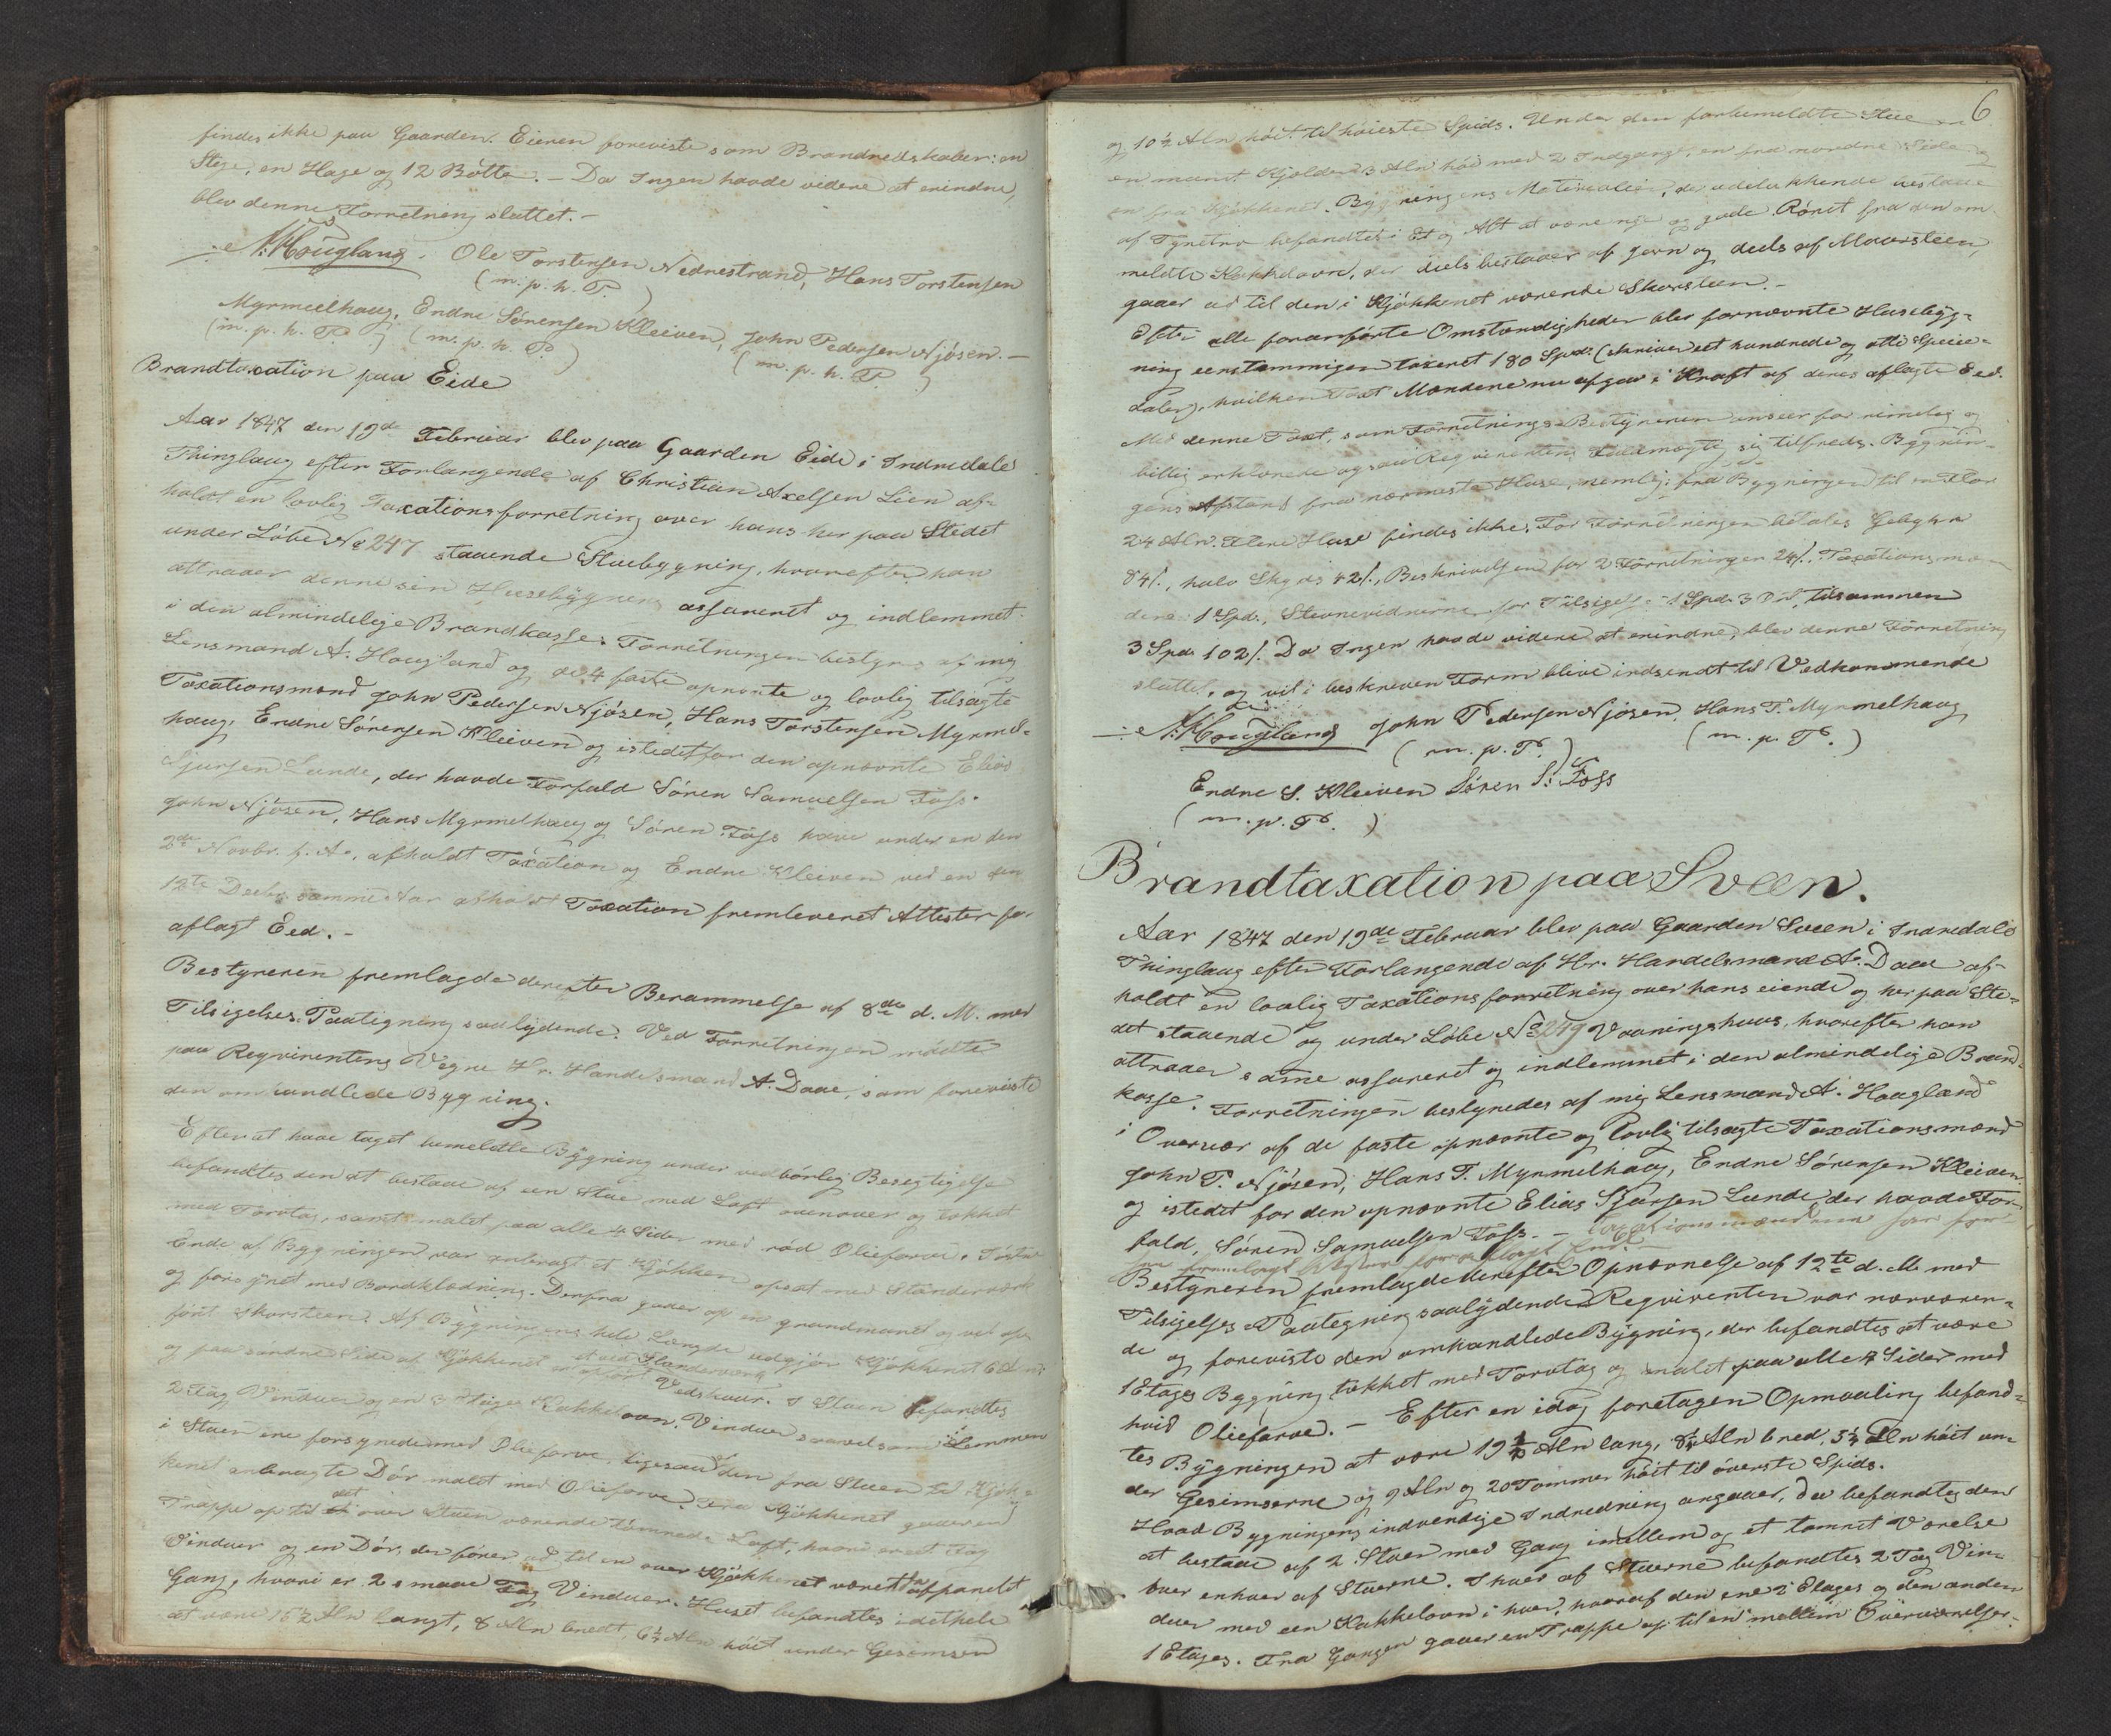 findes ikke paa Gaarden. Eieren foreviste som Brandredskaber: en
Stege, en Hage og 12 Bøtter. - Da Ingen havde videre at erindre,
blev denne Forretning sluttet. -
A. Hougland. Ole Torstensen Nedrestrand, Hans Torstensen
(m. p. h. P.)
Myrmelhaug, Endre Sørensen Kleiven, John Pedersen Njøsen. -
(m. p. h. P.) (m. p. h. P.) (m. p. h. P.)
Brandtaxation paa Eide
Aar 1847 den 19de Februar blev paa Gaarden Eide i Indredals
Thinglaug efter Forlangende af Christian Axelsen Lien af-
holdt en lovlig Taxationsforretning over hans her paa Stedet
under Løbe No 247 staaende Stuebygning, hvorefter han
attraaer denne sin Huusebygning assureret og indlemmet
i den almindelige Brandkasse. Forretningen bestyres af mig
Lensmand A. Hougland og de 4 faste opnevnte og lovlig tilsagte
Taxationsmænd John Pedersen Njøsen, Hans Torstensen Myrmel-
haug, Endre Sørensen Kleiven og istedet for den opnævnte Elias
Sjursen Lunde, der havde Forfald Søren Samuelsen Foss.
John Njøsen, Hans Myrmelhaug og Søren Foss have under en den
2de Novbr. f. A., afholdt Taxation og Endre Kleiven ved en den
12te Decbr. samme Aar afholdt Taxation fremleveret Attester for
aflagt Eed. -
Bestyreren fremlagde derefter Berammelse af 8de d. M. med
Tilsigelses Paategning saalydende: Ved Forretningen mødte
paa Reqvirentens Vegne Hr. Handelsmand A. Daae, som foreviste
den omhandlede Bygning.
Efter at have taget bemeldte Bygning under vedbørlig Besegtigelse
befandtes den at bestaae af een Stue med Loft ovenover og tækket
med Torvtag, samt malet paa alle 4 Sider med rød Oliefarve. I østre
Ende af Bygningen var anbragt et Kjøkken opsat med Standerværk
og forsynet med Bordklædning. Derfra gaaer op en grundmuret og vel op-
ført Skorsteen. Af Bygningens hele Længde udgjør Kjøkkenet 6 Aln
og paa søndre Side af Kjøkkenet er opført et ved Standerværk Vedskuur. I Stuen befandtes
2 Fag Vinduer og en 3 Etages Kakkelovn. Vinduer saavelsom Lemmen
i Stuen ere forsynede med Oliefarve, ligesaa den fra Stuen til Kjøk-
kenet anbragte Dør malet med Oliefarve. Fra Kjøkkenet gaaer en
Trappe op til det over Stuen værende tømrede Loft, hvori er eet Fag
Vinduer og en Dør, der fører ud til en over Kjøkkenet værende afpanelet
Gang, hvori er 2 smaae Fag Vinduer. Huset befandtes i dethele
at være 15½ Aln langt, 8 Aln bredt, 6½ Aln høit under Gesimsen
6
og 10½ Aln høit til høieste Spids. Under den forbemeldte Stue er
en muret Kjelder 3 Aln høi med 2 Indgange, en fra nordre Side og
en fra Kjøkkenet. Bygningens Materialier, der udelukkende bestaae
af Fyretræ befandtes i Et og Alt at være nye og gode. Røret fra den om-
meldte Kakkelovn, der deels bestaaer af Jern og deels af Muursteen,
gaaer ud til den i Kjøkkenet værende Skorsteen. -
Efter alle foranførte Omstændigheder blev fornævnte Husebyg-
ning eenstemmigen taxeret 180 Spdr. (skriver eet hundrede og otti Specie-
daler), hvilken Taxt Mændene nu afgav i Kraft af deres aflagte Eed.
Med denne Taxt, som Forretnings-Bestyreren anseer for rimelig og
billig erklærede ogsaa Reqvirentens Fuldmægtig sig tilfreds. Bygnin-
gens Afstand fra nærmeste Huse, nemlig: fra Bygningen til en Flor
24 Aln. Flere Huse findes ikke. For Forretningen betales Gebyhr
84 ß., halv Skyds 42 ß., Beskrivelsen for 2 Forretninger 24 ß., Taxationsmæn-
dene 1 Spd., Stevnevidnerne for Tilsigelse 1 Spd. 3 Ort, tilsammen
3 Spd. 102 ß. Da Ingen havde videre at erindre, blev denne Forretning
sluttet, og vil i beskreven Form blive indsendt til Vedkommende
A. Hougland John Pedersen Njøsen, Hans T. Myrmelhaug
(m. p. P.) (m. p. P.)
Endre S. Kleiven Søren S. Foss
(m. p. P.)
Brandtaxation paa Sveen.
Aar 1847 den 19de Februar blev paa Gaarden Sveen i Indredals
Thinglaug efter Forlangende af Hr. Handelsmand A. Daae af-
holdt en lovlig Taxationsforretning over hans eiende og her paa Ste-
det staaende og under Løbe No 249 Vaaningshuus, hvorefter han
attraaer samme assureret og indlemmet i den almindelige Brand-
kasse. Forretningen bestyredes af mig Lensmand A. Hougland
i Overvær af de faste opnævnte og lovlig tilsagte Taxationsmænd
John P. Njøsen, Hans T. Myrmelhaug, Endre Sørensen Kleiven
og istedet for den opnævnte Elias Sjursen Lunde der havde For-
fald, Søren Samuelsen Foss. - Taxationsmændene har før
fremlagt Attester for aflagt Eed. -
Bestyreren fremlagde derefter Opnævnelse af 12te d. M. med
Tilsigelses Paategning saalydende: Reqvirenten var nærværen-
de og foreviste den omhandlede Bygning, der befandtes at være
1 Etages Bygning tækket med Torvtag og malet paa alle 4 Sider med
hvid Oliefarve. - Efter en idag foretagen Opmaaling befand-
tes Bygningen at være 19½ Aln lang, 8½ Aln bred, 5½ Aln høit un-
der Gesimserne og 9 Aln og 20 Tommer høit til øverste Spids.
Hvad Bygningens indvendige Indredning angaaer, da befandtes den
at bestaae af 2 Stuer med Gang imellem og et tømret Værelse
over enhver af Stuerne. I hver af Stuerne befandtes 2 Fag Vin-
duer med een Kakkelovn i hver, hvoraf den ene 2 Etages og den anden
1 Etages. Fra Gangen gaaer en Trappe op til en mellem Overværelser-